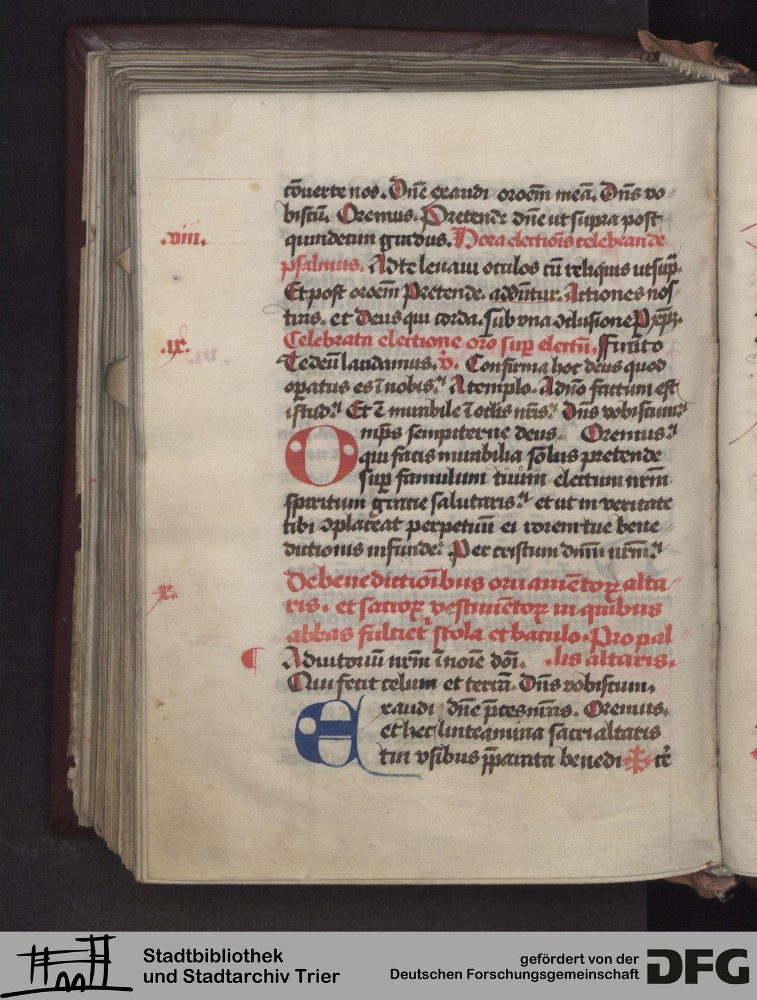 cōuerte nos. Dn̄e exaudi oroēm meā. Dn̄s vo
biscū. Oremus. Pretende dn̄e ut supra post
.viii.
quindecim gradus. Hora electiōis celebrande
psalmus. Ad te leuaui oculos cū reliquis ut sup̄.
Et post oroēm Pretende. addūtur. Actiones nos
tras. et Deus qui corda. sub vna ↄclusione
.ix.
Celebrata electione oro sup electū.
Te deū laudamus. v. Confirma hoc deus quod
opatus es ī nobis. A templo. A dnō factum est
istud. Et ē mirabile ī oclis nr̄is. Dn̄s vobiscum
Omps sempiterne deus. Oremus
qui facis mirabilia solus pretende
sup famulum tuum electum nrm̄
spiritum gratie salutaris. et ut in veritate
tibi ↄplaceat perpetuū ei rorem tue bene
dictionis infunde. Per cristum dn̄m nrm̄.
.x.
De benedictiōibus ornamētoꝝ alta
ris. et sacroꝝ vestimētoꝝ in quibus
abbas fulciet᷑ stola et baculo. Pro pal
lis altaris.
¶ Adiutoriū nrm̄ ī noīe dn̄i.
Qui fecit celum et terrā. Dn̄s vobiscum.
Exaudi dn̄e pces nr̄as. Oremus.
et hec linteamina sacri altaris
tui vsibus pparata benedi ✠ cē
Stadtbibliothek
und Stadtarchiv Trier
gefördert von der
Deutschen Forschungsgemeinschaft
DFG